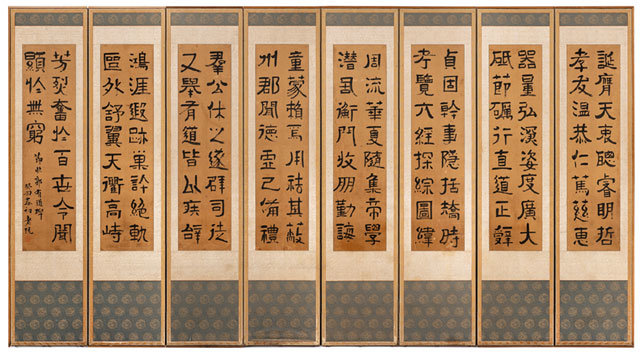 誕膺天衷聰睿明哲
孝友温恭仁篤慈惠
器量弘深姿度廣大
砥節礪行直道正辭
貞固幹事隱括矯時
考覽六經探綜圖緯
周流華夏隨集帝學
潛身衡門收朋勤誨
童蒙賴焉用祛其蔽
州郡聞德虛己備禮
羣公休之遂辟司徒
又舉有道皆以疾辭
鴻涯遐跡巢許絶軌
區外舒翼天衢高峙
芳烈奮於百世令聞
顯於無窮
郭有道碑